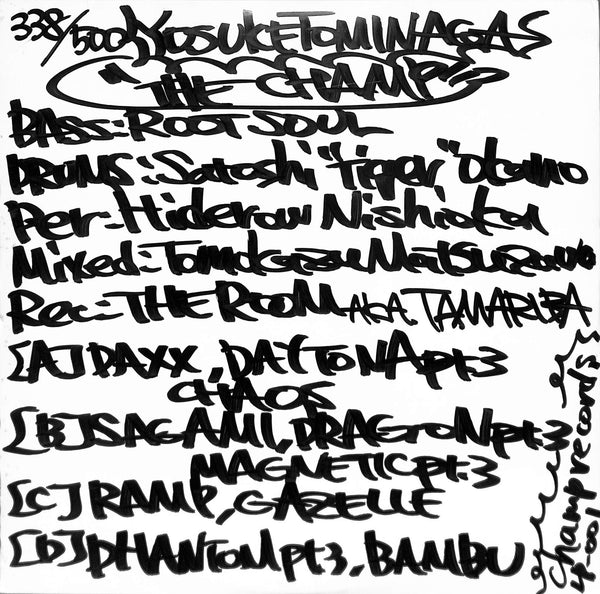 338/500 KOSUKE TOMINAGAS
"THE CHAMP"
BASS:ROOT SOUL
DRUMS:Satoshi "tiger" otano
Per:Hiderow Nishioka
Mixed:Tomokazu Matsuzawa
Rec:THE ROOM AKA. TAMARIBA
[A] DAXX, DAYTONA pt.3
CHAOS
[B] SAGAMI, DRAGON pt.3
MAGNETIC pt.3
[C] RAMP, GAZELLE
[D] PHANTOM pt.3, BAMBU
champ records
LP-001